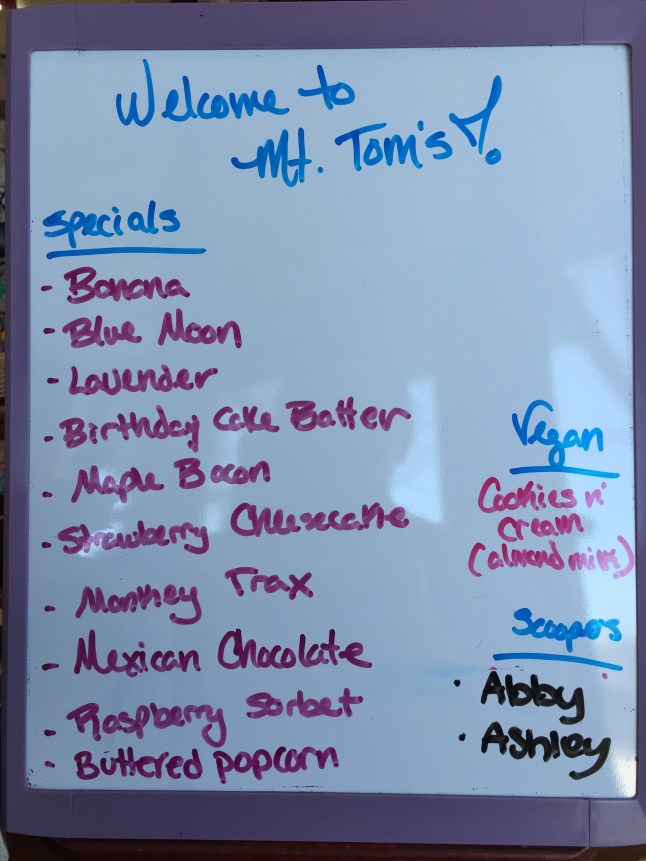 Welcome to
Mt. Tom's!
Specials
- Banana
- Blue Moon
- Lavender
- Birthday Cake Batter
- Maple Bacon
- Strawberry Cheesecake
- Monkey Trax
- Mexican Chocolate
- Raspberry Sorbet
- Buttered popcorn
Vegan
Cookies n'
cream
(almond milk)
Scoopers
· Abby
· Ashley